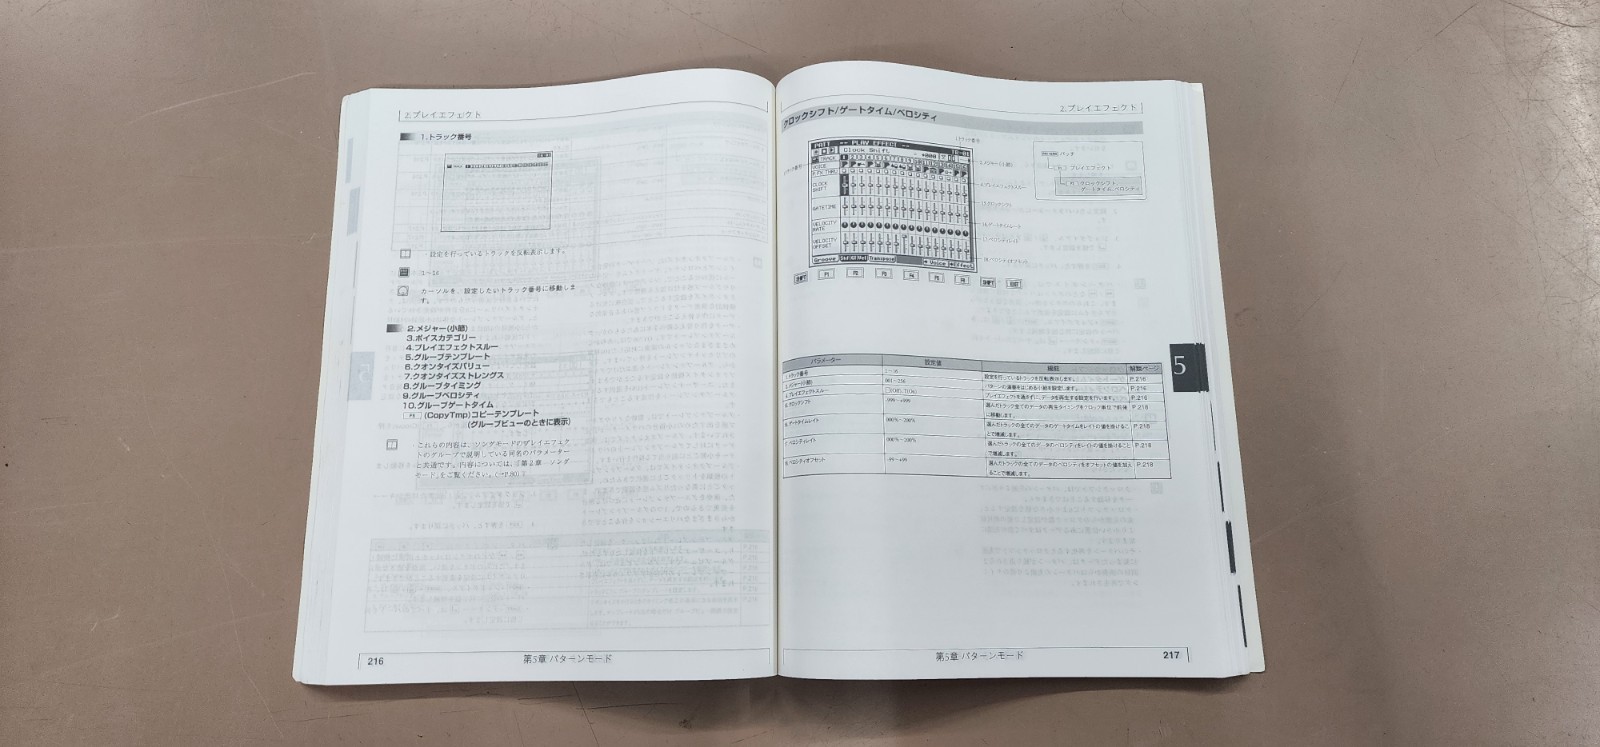 2.プレイエフェクト
1.トラック番号
設定を行っているトラックを反転表示します。
1〜16
カーソルを、設定したいトラック番号に移動しま
す。
2.メジャー(小節)
3.ボイスカテゴリー
4.プレイエフェクトスルー
5.グループテンプレート
6.クオンタイズバリュー
7.クオンタイズストレングス
8.グループタイミング
9.グループベロシティ
10.グループゲートタイム
F5 (CopyTmp)コピーテンプレート
(グループビューのときに表示)
これらの内容は、ソングモードのプレイエフェク
トのグループで説明している同名のパラメーター
と共通です。内容については、「第2章 ソング
モード」をご覧ください。
216
第5章 パターンモード
2.プレイエフェクト
クロックシフト/ゲートタイム/ベロシティ
PATT -- PLAY EFFECT --
Clock Shift
TRACK
VOICE
P.FX THRU
CLOCK
SHIFT
GATETIME
VELOCITY
RATE
VELOCITY
OFFSET
Groove
Transpose
Voice
Effect
SHIFT F1 F2 F3 F4 F5 F6 SHIFT EXIT
パッチ
プレイエフェクト
クロックシフト/
ゲートタイム/ベロシティ
パラメーター 設定値 機能 解説ページ
1.トラック番号 1〜16 設定を行っているトラックを反転表示します。 P.216
2.メジャー(小節) 001〜256 パターンの演奏をはじめる小節を設定します。 P.216
4.プレイエフェクトスルー プレイエフェクトを通さずに、データを再生する設定を行います。 P.216
クロックシフト -999〜+999 選んだトラック全てのデータの再生タイミングをクロック単位で前後 P.218
に移動します。
ゲートタイムレイト 000%〜200% 選んだトラックの全てのデータのゲートタイムをレイトの値を掛けるこ P.218
とで増減します。
ベロシティレイト 000%〜200% 選んだトラックの全てのデータのベロシティをレイトの値を掛けること P.218
で増減します。
ベロシティオフセット -99〜+99 選んだトラックの全てのデータのベロシティをオフセットの値を加え P.218
ることで増減します。
5
第5章 パターンモード
217